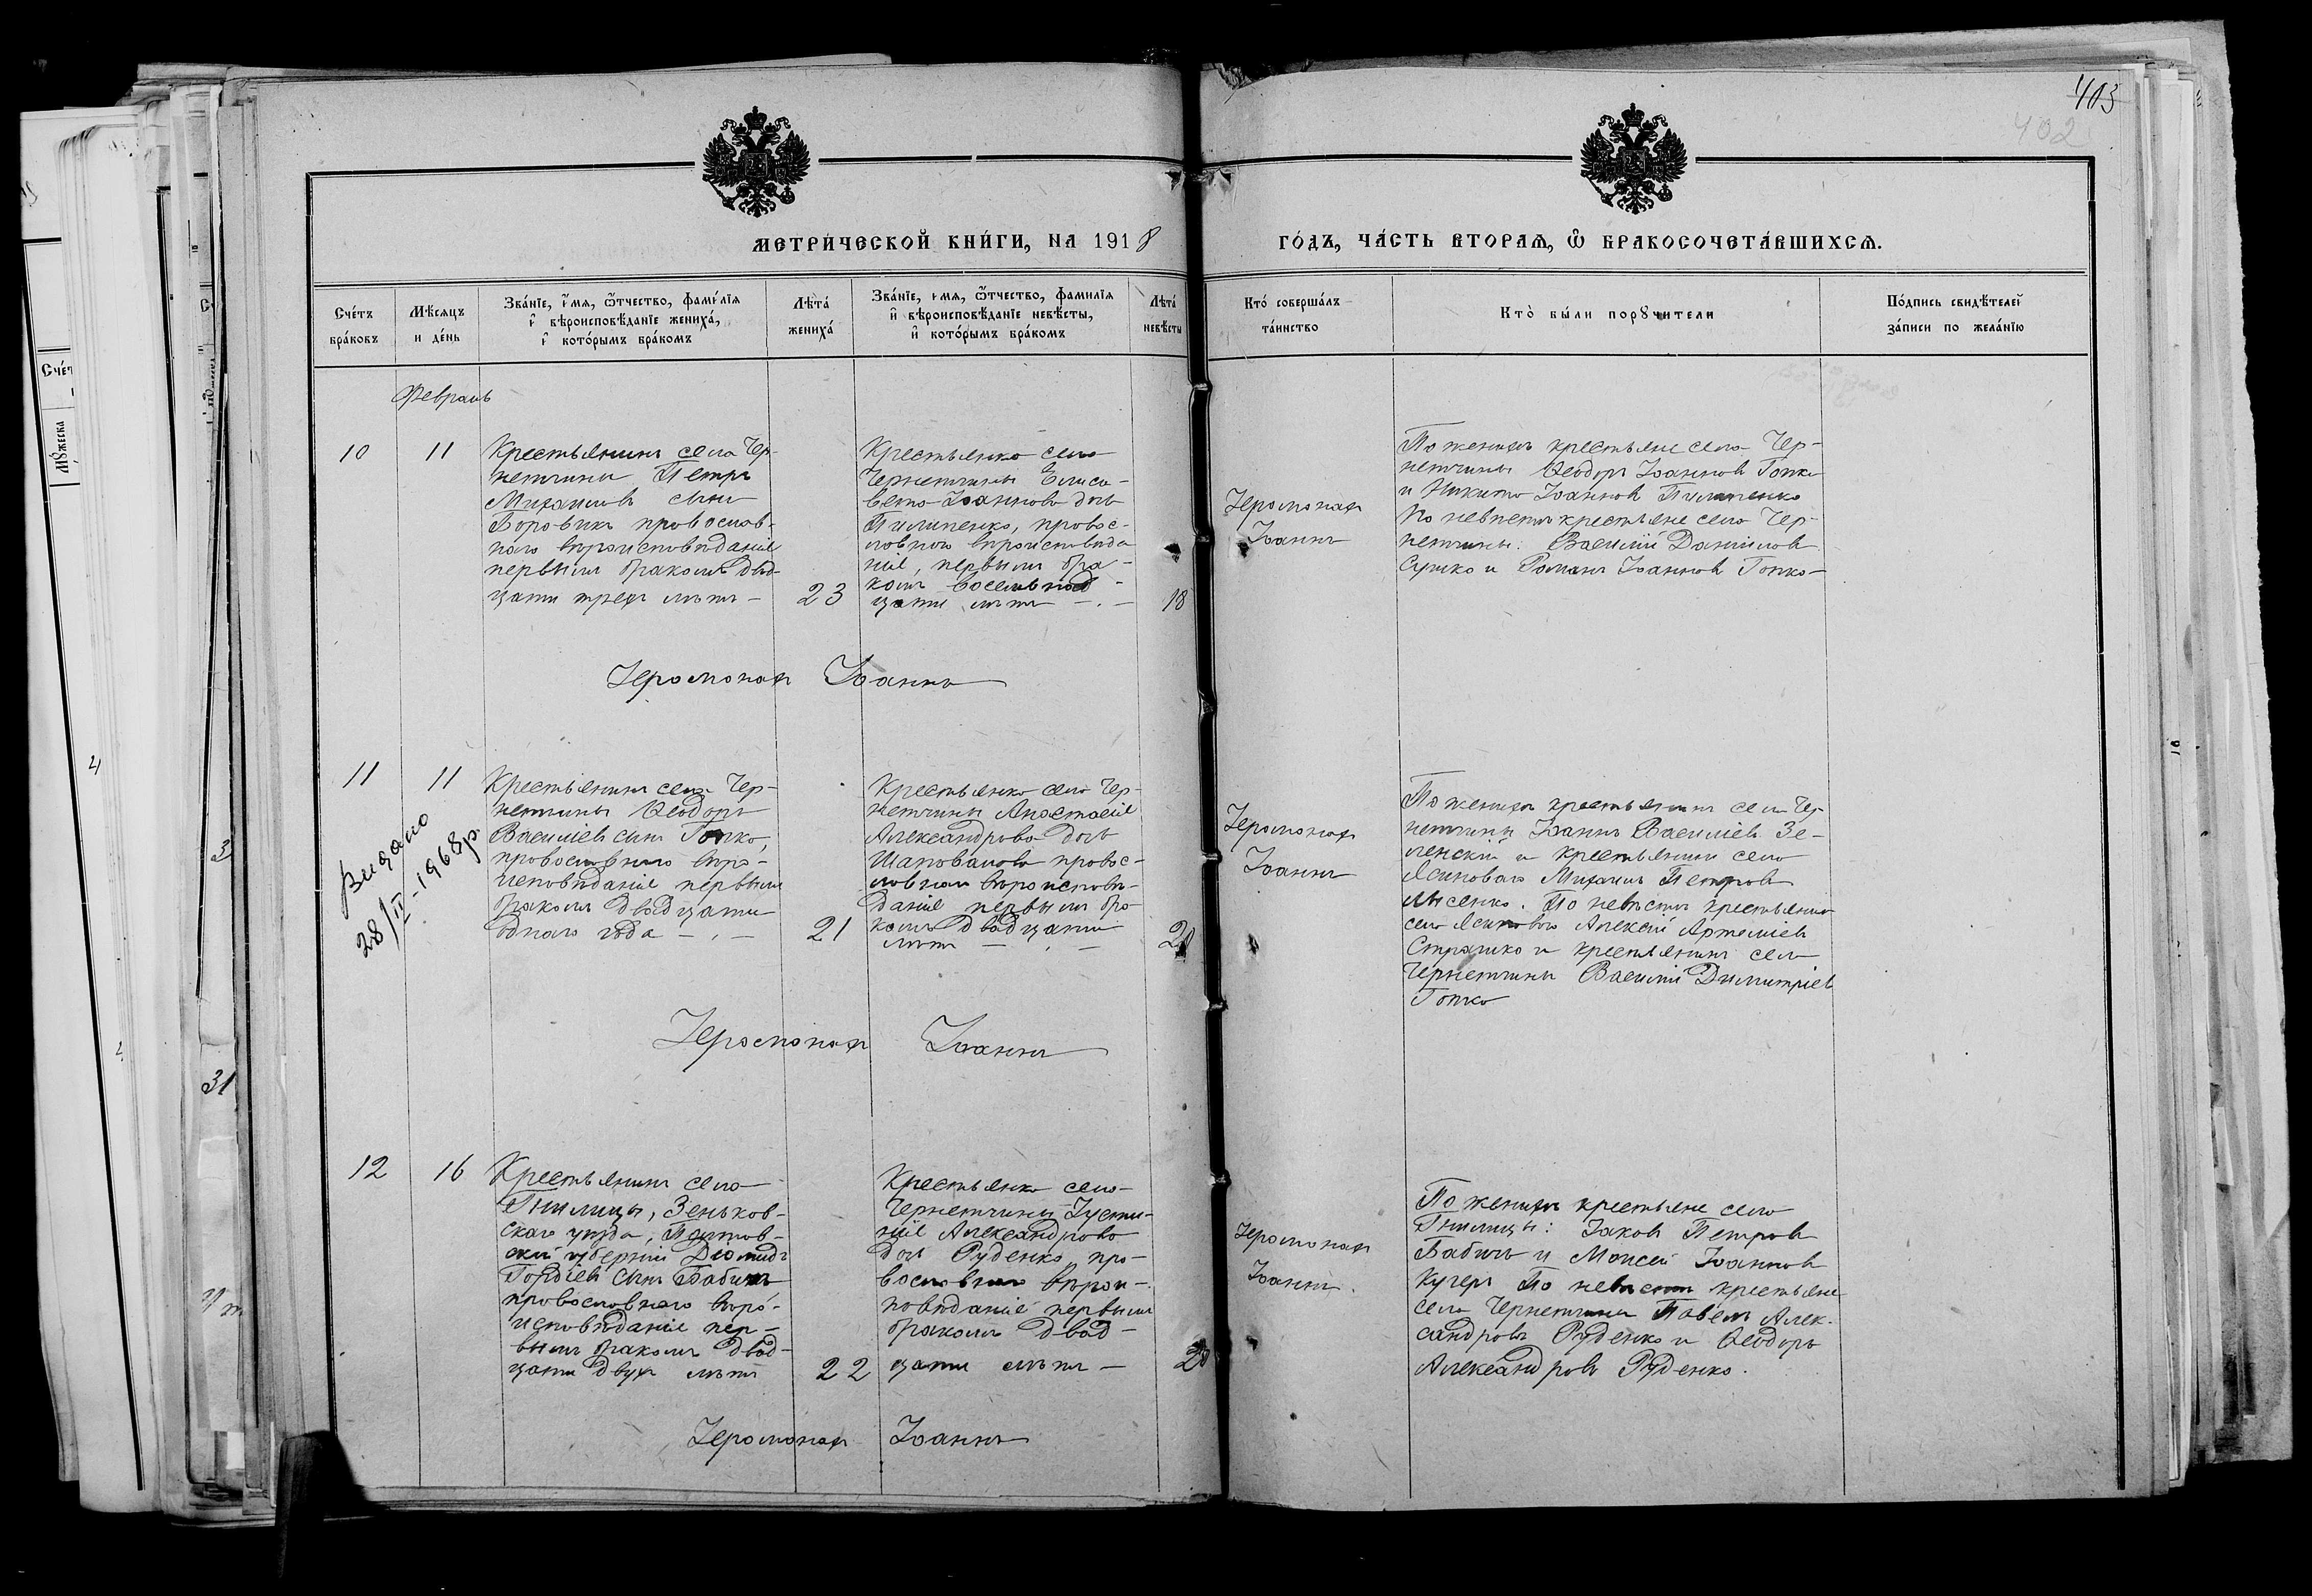 403
402
МЕТРИЧЕСКОЙ КНИГИ, НА 1918
ГОДЪ, ЧАСТЬ ВТОРАЯ, Ѡ БРАКОСОЧЕТАВШИХСЯ.
Счетъ
браковъ
Мѣсяцъ
и день
Званіе, имя, ѿтчество, фамилія
и вѣроисповѣданіе жениха,
и которымъ бракомъ
Лѣта
жениха
Званіе, имя, ѿтчество, фамилія
и вѣроисповѣданіе невѣсты,
и которымъ бракомъ
Лѣта
невѣсты
Кто совершалъ
таинство
Кто были порꙋчители
Подпись свидѣтелей
записи по желанію
Февраль
10
11
Крестьянинъ села Чер-
нетчины Петръ
Михаиловъ сынъ
Боровикъ православ-
наго вѣроисповѣданія
первымъ бракомъ двад-
цати трехъ лѣтъ –
23
Крестьянка села
Чернетчины Елиса-
вета Іоаннова дочь
Пилипенко, правос-
лавнаго вѣроисповѣда
нія, первымъ бра-
комъ восемнад-
цати лѣтъ –.–
18
Іеромонах
Іоаннъ
По женихѣ крестьяне села Чер-
нетчины Ѳеодоръ Іоанновъ Гопко
и Никита Іоанновъ Пилипенко
По невѣстѣ крестьяне села Чер-
нетчины: Василій Даниловъ
Сушко и Романъ Іоанновъ Гопко –
Іеромонах Іоаннъ
11
11
Видано
28/II-1968р.
Крестьянинъ села Чер-
нетчины Ѳеодоръ
Василіевъ сынъ Гопко,
православнаго вѣро-
исповѣданія первымъ
бракомъ двадцати
одного года – . –
21
Крестьянка села Чер-
нетчины Анастасія
Александрова дочь
Шаповалова правос-
лавнаго вѣроисповѣ-
данія первымъ бра-
комъ двадцати
лѣтъ – . –
20
Іеромонах
Іоаннъ
По женихѣ крестьянинъ села Чер-
нетчины Іоаннъ Василіевъ Зе-
ленскій и крестьянинъ села
Ясиноваго Михаилъ Петровъ
Лысенко. По невѣстѣ крестьянинъ
села Ясиноваго Алексій Артеміевъ
Страшко и крестьянинъ села
Чернетчины Василій Димитріевъ
Гопко
Іеромонах Іоаннъ
12
16
Крестьянинъ села
Гнилицы, Зеньков-
скаго уѣзда, Полтав-
ской губерніи Діомидъ
Гордіевъ сынъ Бабичъ
православнаго вѣро-
исповѣданія пер-
вымъ бракомъ двад-
цати двухъ лѣтъ
22
Крестьянка села
Чернетчины Іусти-
нія Александрова
дочь Руденко, пра-
вославнаго вѣрои-
повѣданія первымъ
бракомъ двад-
цати лѣтъ –
20
Іеромонах
Іоаннъ.
По женихѣ крестьяне села
Гнилицы: Іаковъ Петровъ
Бабичъ и Моисей Іоанновъ
Кучеръ По невѣстѣ крестьяне
села Чернетчины Павелъ Алек-
сандровъ Руденко и Ѳеодоръ
Александровъ Руденко.
Іеромонах Іоаннъ